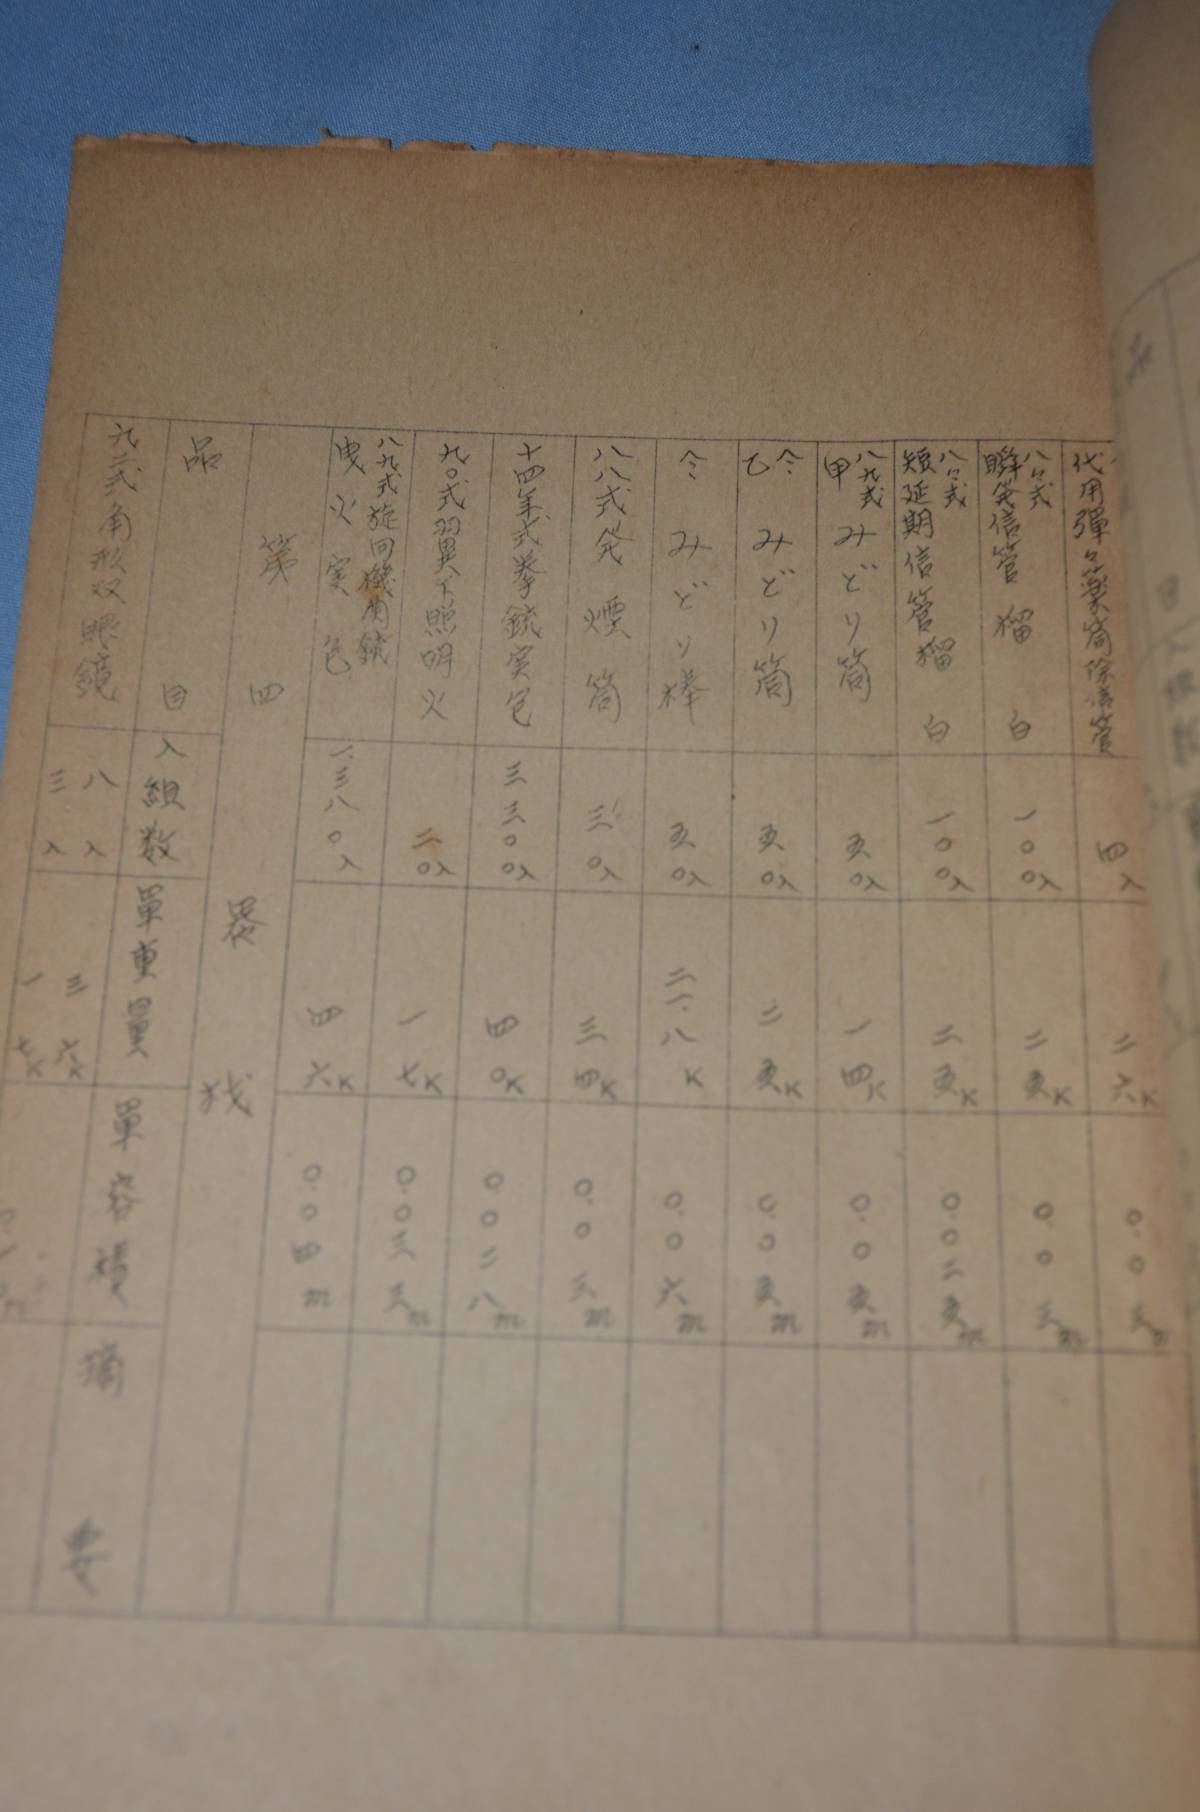 代用彈々薬筒除信管
四入
二六K
〇.〇三m
八八式
瞬発信管榴
白
一〇〇入
二五K
〇.〇三m
八八式
短延期信管榴
白
一〇〇入
二五K
〇.〇二五m
八九式
甲
みどり筒
五〇入
一四K
〇.〇五m
仝
乙
みどり筒
五〇入
二五K
〇.〇五m
仝 みどり棒
五〇入
二一.八K
〇.〇六m
八八式発煙筒
三〇入
三四K
〇.〇三m
十四年式拳銃実包
三三〇〇入
四〇K
〇.〇二八m
九〇式翼下照明火
二〇入
一七K
〇.〇三三m
八九式旋回機関銃
曳火実包
一.三八〇入
四六K
〇.〇四m
第四 器材
品目
入組数
單重量
單容積
摘要
九三式角形双眼鏡
八入
三入
三六K
一七K